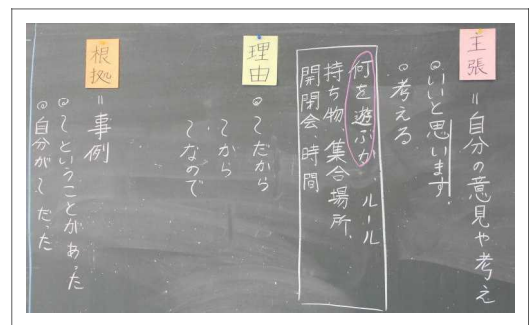 主張
＝自分の意見や考え
◎いいと思います。
◎考える
何を遊ぶか ルール
持ち物、集合場所、
開閉会、時間
理由
◎〜だから
〜から
〜なので
根拠
＝事例
◎〜ということがあった
◎自分が〜だった